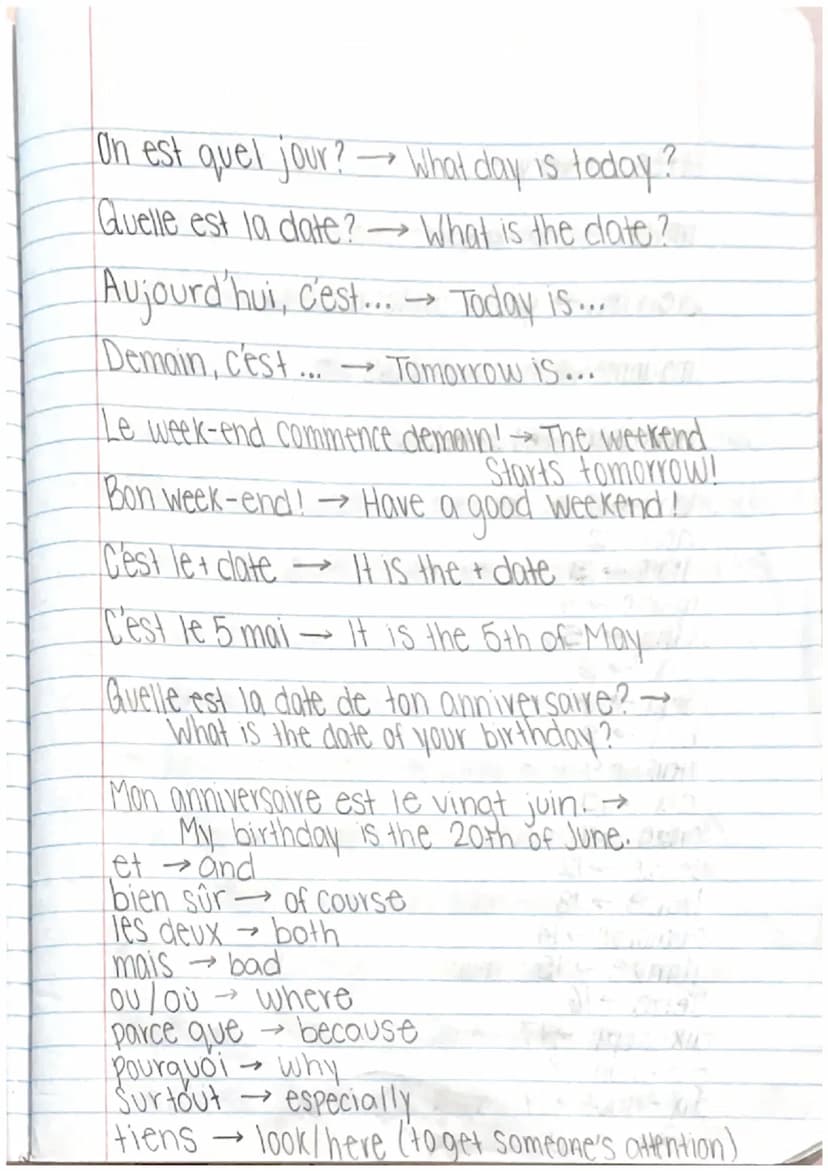 On est quel jour? → What day is today?
Quelle est la date? → What is the date?
Aujourd'hui, c'est... → Today is...
Demain, c'est ... → Tomorrow is...
Le week-end commence demain! → The weekend
starts tomorrow!
Bon week-end! → Have a good weekend!
C'est le + date → It is the + date
C'est le 5 mai → It is the 5th of May
Quelle est la date de ton anniversaire? →
What is the date of your birthday?
Mon anniversaire est le vingt juin. →
My birthday is the 20th of June.
et → and
bien sûr → of course
les deux → both
mais → bad
ou/où → where
parce que → because
pourquoi → why
surtout → especially
tiens → look/here (to get someone's attention)